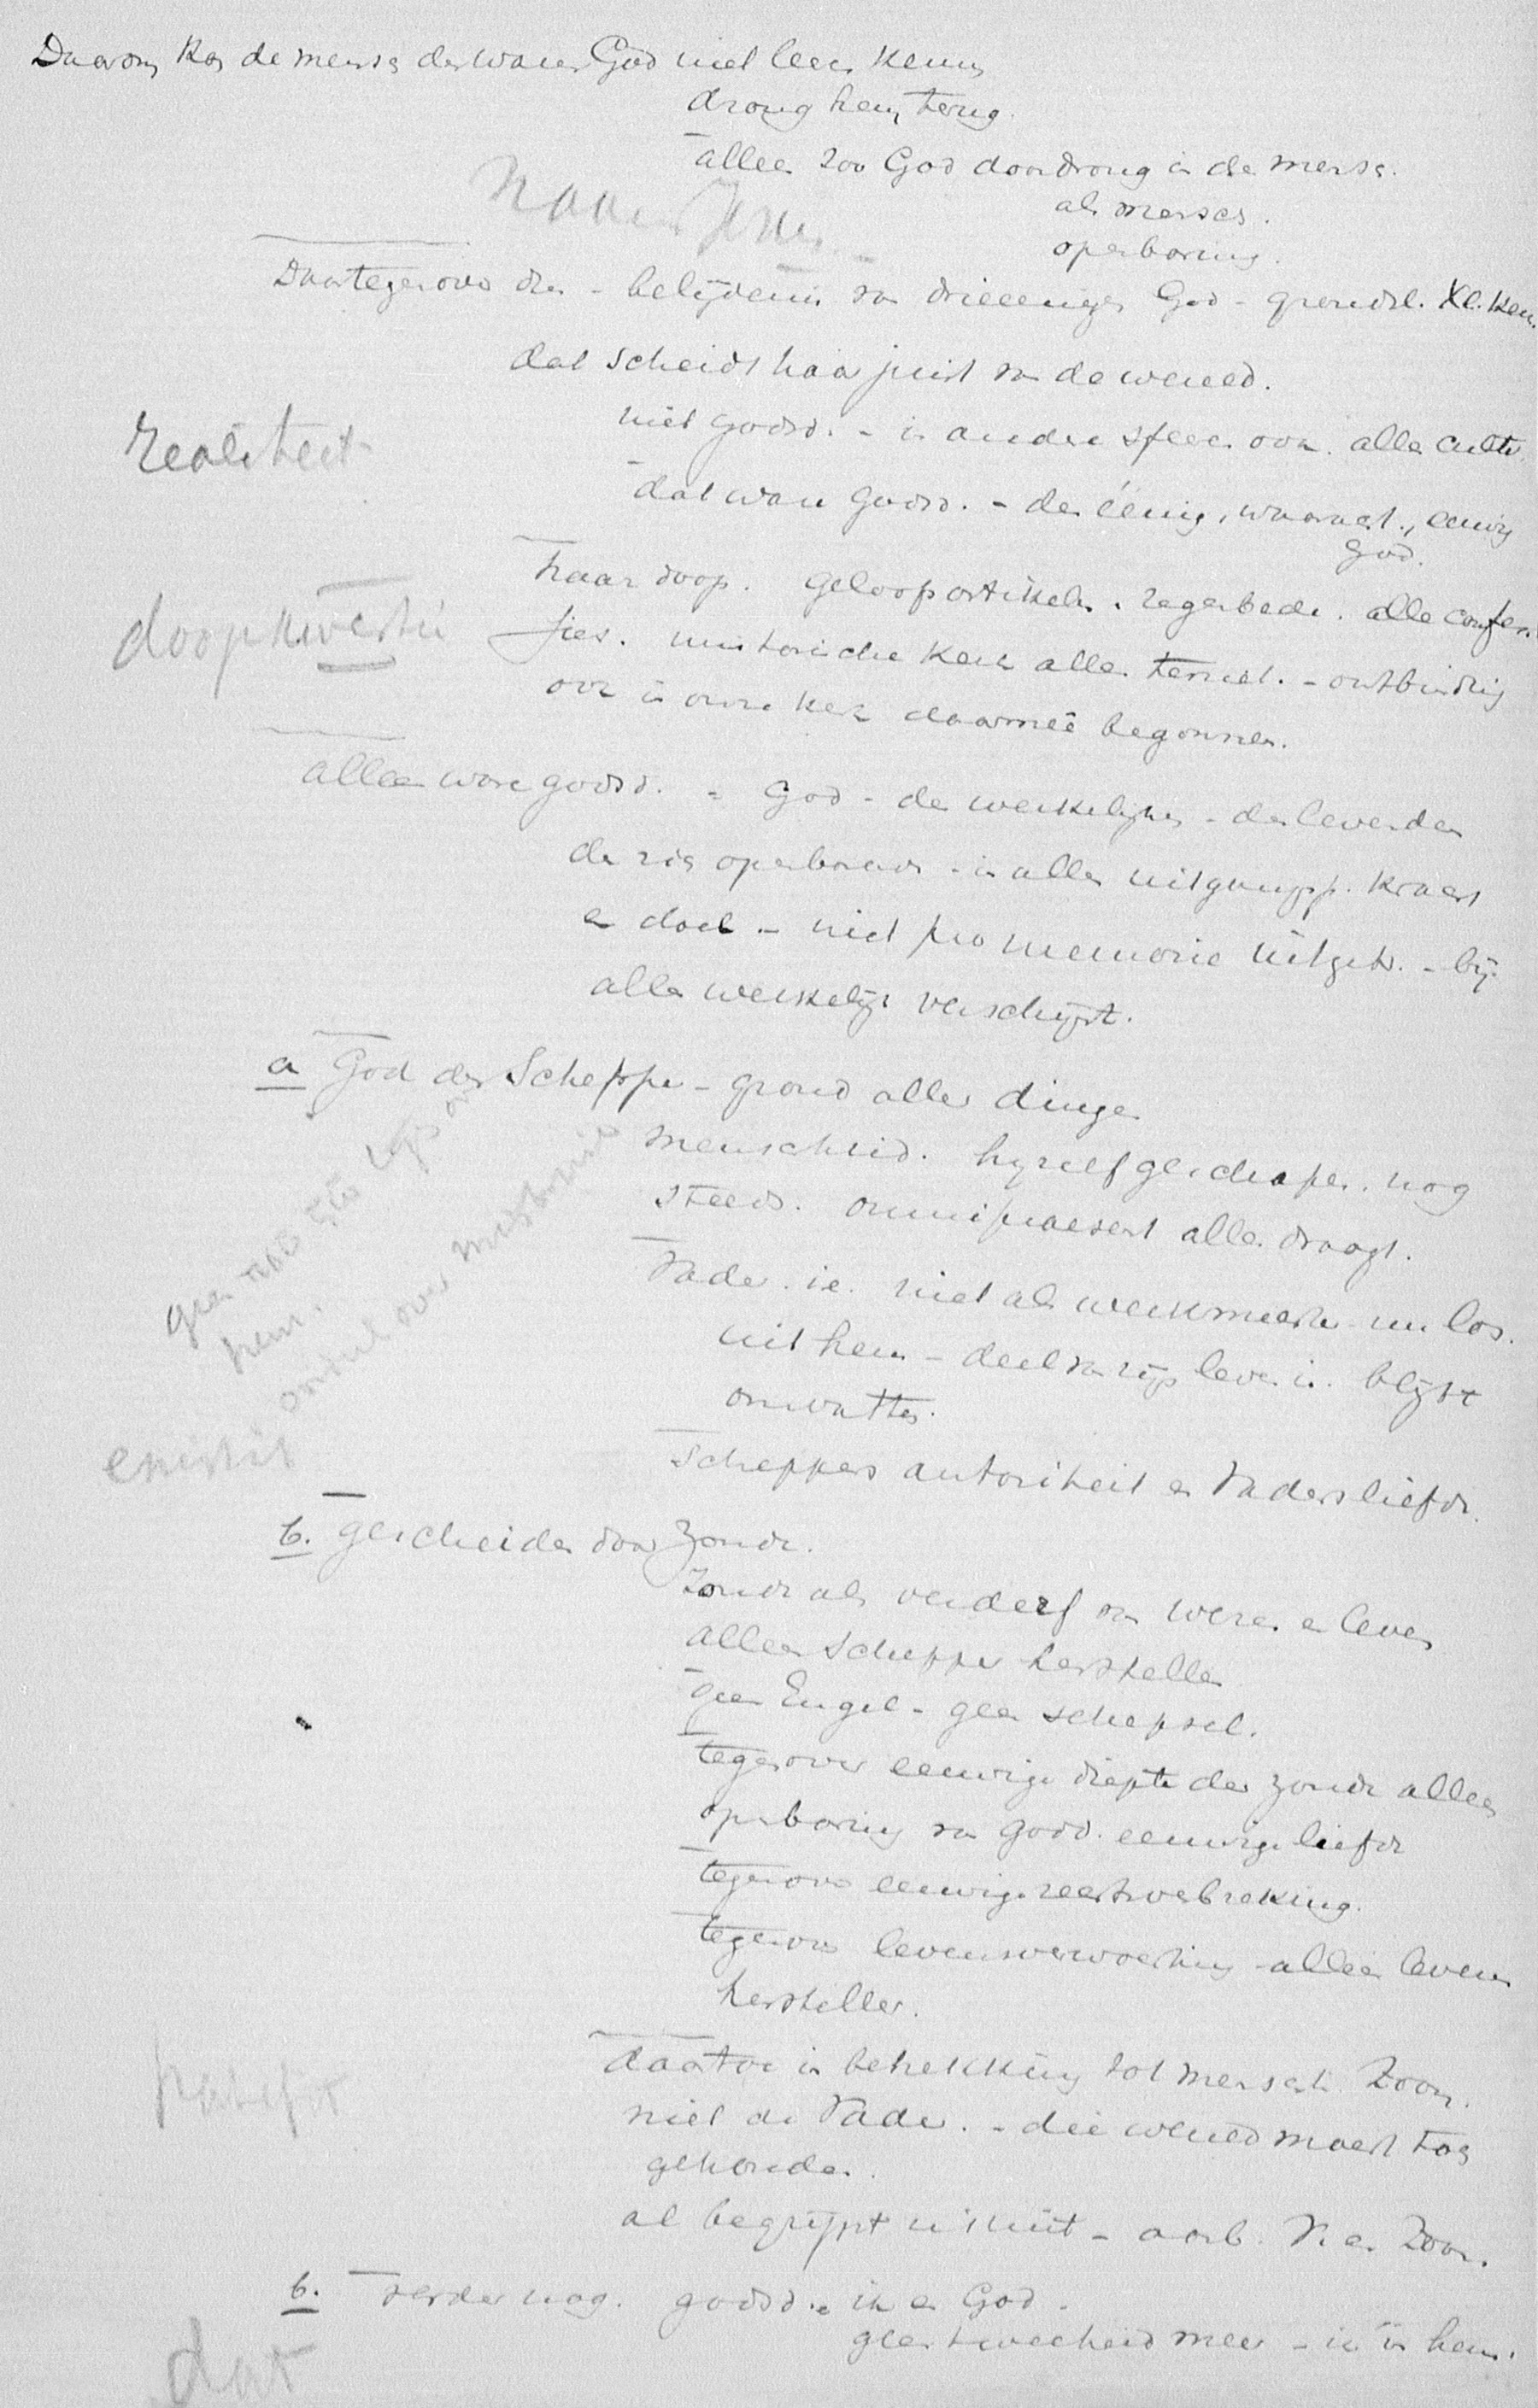 Daarom kan de mensch den waren God niet leeren kennen
drong hem terug.
alleen zoo God doordrong in de mensch.
als mensch.
openbaring.
Daartegenover die - belijdenis van drieeenigen God - grondsl. Kl. Ken.
dat scheidt haar juist van de wereld.
niet godsd. - in andere sfeer over alle
realiteit
dat ware godsd. - de éénig, waaracht., eeuwig
God.
haar doop. geloofsartikelen. zegenbede. alle confes
doopkwestie
sies. historische kerk alle - ontbinding
ook in onze kerk daarmeê begonnen.
alleen ware godsd. = God - de werkelijke - de levenden
die zich openbaart - in alles uitgangsp. kracht
en doel - niet pro memorie uitget. - bij
alle werkelijk verschijnt.
a God de Schepper - grond aller dingen
menschheid. hijzelf geschapen. nog
steeds. omnipraesent alles draagt.
Vader. i.e. niet als werkmeester nu los.
uit hem - deel van zijn leven is. blijft
omvatten.
Scheppers autoriteit en Vadersliefde.
b. gescheiden door Zonde.
Zonde als verderf van wezen en leven
alleen Schepper herstellen
geen Engel - geen schepsel.
tegenover eeuwige diepte der zonde alleen
openbaring van godd. eeuwige liefde
tegenover eeuwige rechtsverbreking.
tegenover levensverwoesting - alleen levens
hersteller.
daartoe in betrekking tot mensch. Zoon.
niet de Vader. - die wereld moest toch
gehouden.
al begrijpt u 't niet - aanb. V. en Zoon.
b. verder nog. godsd. ik en God -
geen tweeheid meer - ik in hem.
dat